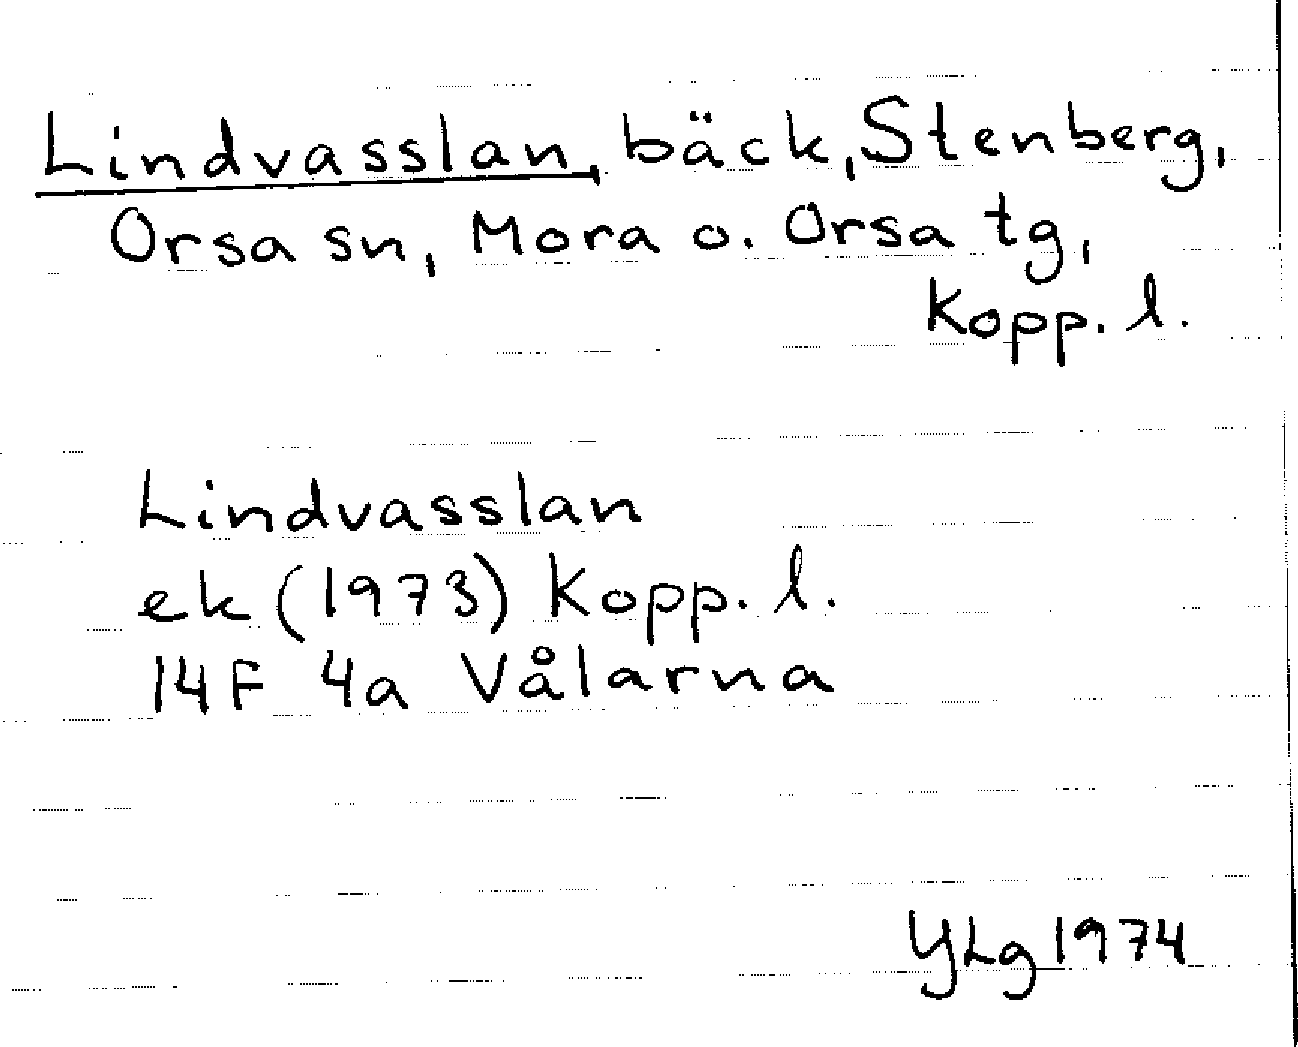 Lindvasslan, bäck, Stenberg,
Orsa sn, Mora o. Orsa tg,
Kopp. l.
Lindvasslan
ek (1973) Kopp. l.
14F 4a Vålarna
YLg 1974